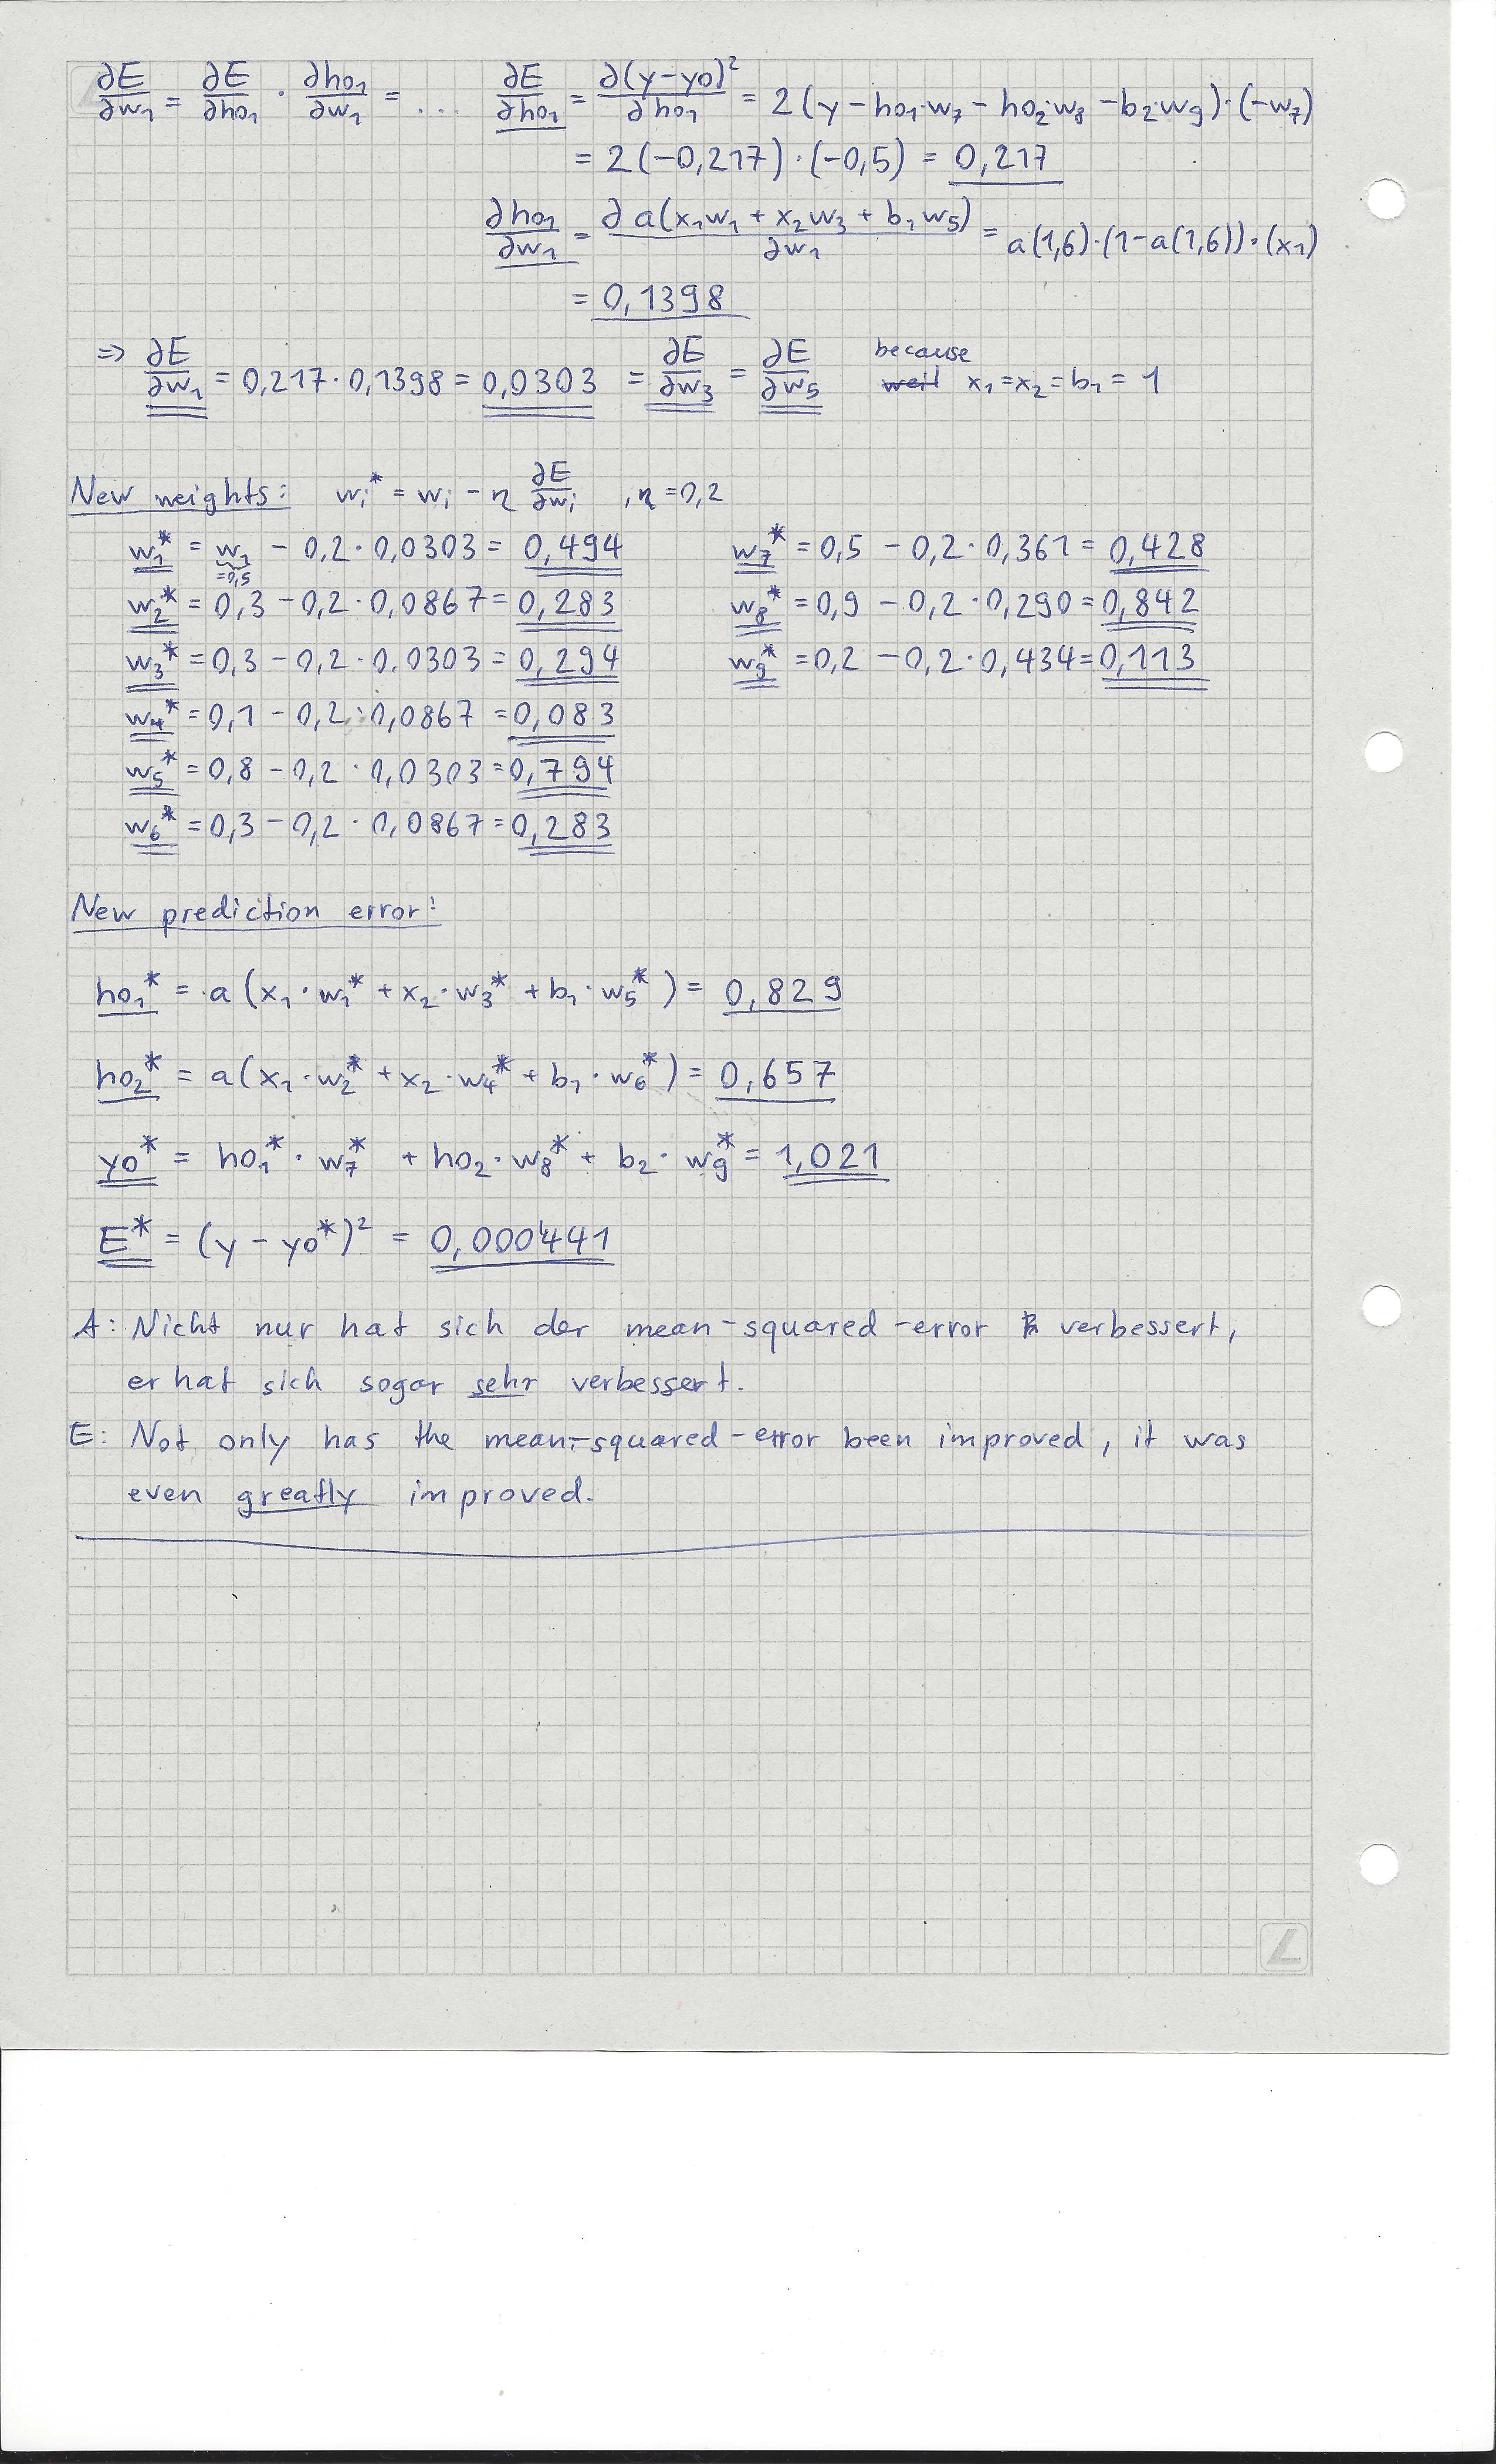 ∂E/∂w₁ = ∂E/∂ho₁ · ∂ho₁/∂w₁ = ... ∂E/∂ho₁ = ∂(y-yo)²/∂ho₁ = 2(y-ho₁·w₇-ho₂·w₈-b₂·w₉)·(-w₇)
= 2(-0,217)·(-0,5) = 0,217
∂ho₁/∂w₁ = ∂a(x₁w₁ + x₂w₃ + b₁w₅)/∂w₁ = a(1,6)·(1-a(1,6))·(x₁)
= 0,1398
⇒ ∂E/∂w₁ = 0,217·0,1398 = 0,0303 = ∂E/∂w₃ = ∂E/∂w₅ because weil x₁=x₂=b₁=1
New weights: wᵢ* = wᵢ - η ∂E/∂wᵢ , η=0,2
w₁* = w₁ - 0,2·0,0303 = 0,494 w₇* = 0,5 - 0,2·0,361 = 0,428
=0,5
w₂* = 0,3 - 0,2·0,0867 = 0,283 w₈* = 0,9 - 0,2·0,290 = 0,842
w₃* = 0,3 - 0,2·0,0303 = 0,294 w₉* = 0,2 - 0,2·0,434 = 0,113
w₄* = 0,1 - 0,2·0,0867 = 0,083
w₅* = 0,8 - 0,2·0,0303 = 0,794
w₆* = 0,3 - 0,2·0,0867 = 0,283
New prediction error:
ho₁* = a(x₁·w₁* + x₂·w₃* + b₁·w₅*) = 0,829
ho₂* = a(x₁·w₂* + x₂·w₄* + b₁·w₆*) = 0,657
yo* = ho₁*·w₇* + ho₂·w₈* + b₂·w₉* = 1,021
E* = (y - yo*)² = 0,000'441
A: Nicht nur hat sich der mean-squared-error verbessert,
er hat sich sogar sehr verbessert.
E: Not only has the mean-squared-error been improved, it was
even greatly improved.